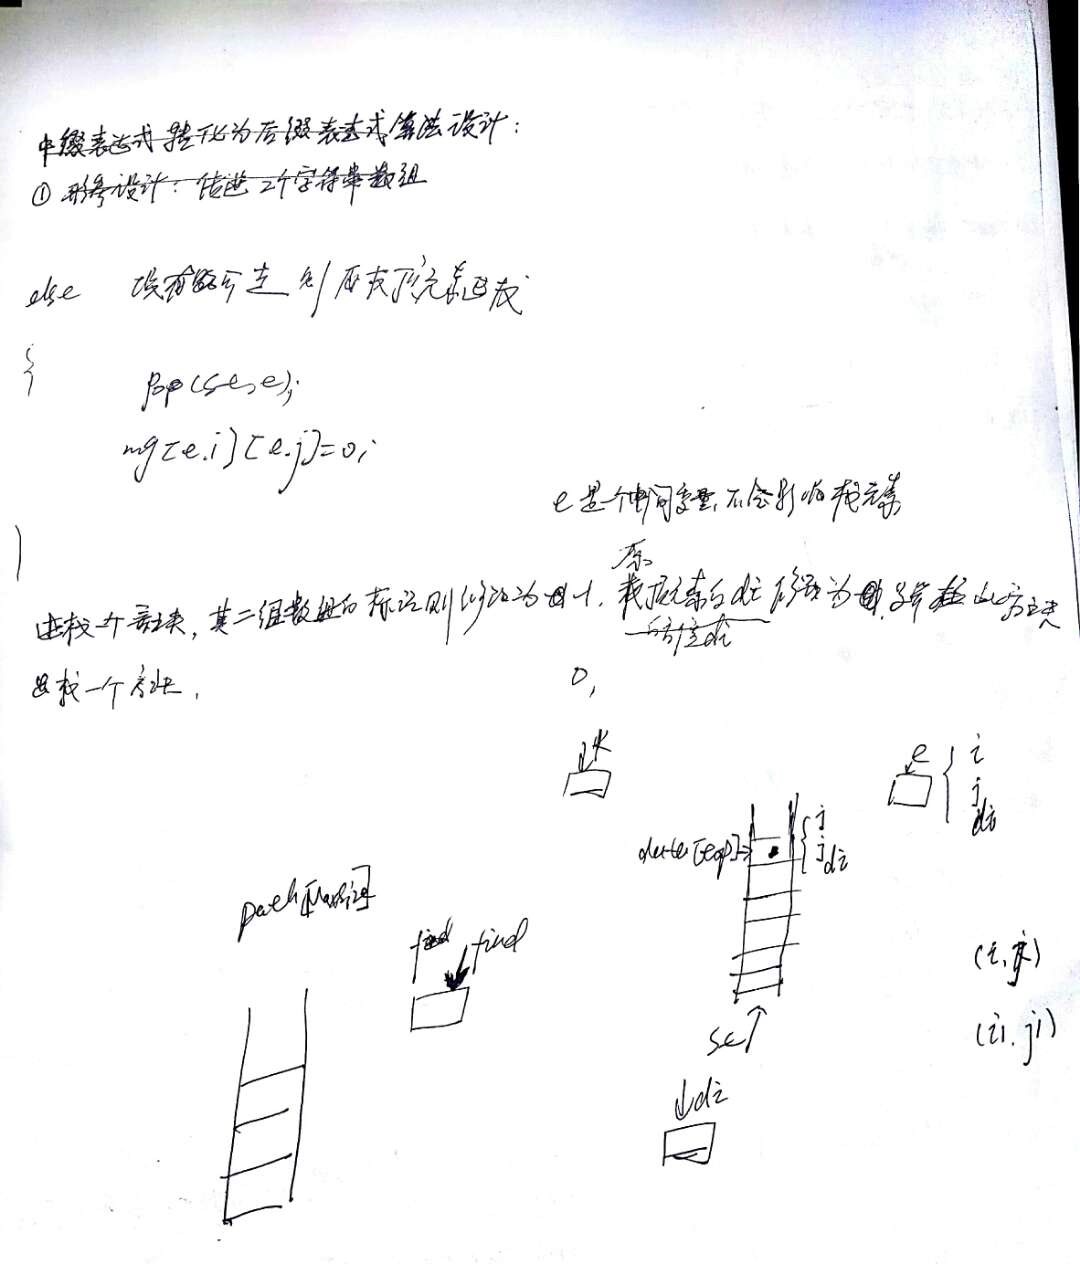 中缀表达式转化为后缀表达式算法设计：
① 形参设计：传进2个字符串数组
else 没有路可走则应栈顶元素退栈
{
Pop(st,e);
mg[e.i][e.j]=0;
e是一个中间变量，不会影响栈元素
}
原
进栈一个方块，其二组数组的标识则修改为-1，栈顶元素的di修改为
的方位di
退栈一个方块，
0，
k
e
i
j
di
data[top]
i
j
di
path[MaxSize]
find find
(i,j)
(i1,j1)
st
di